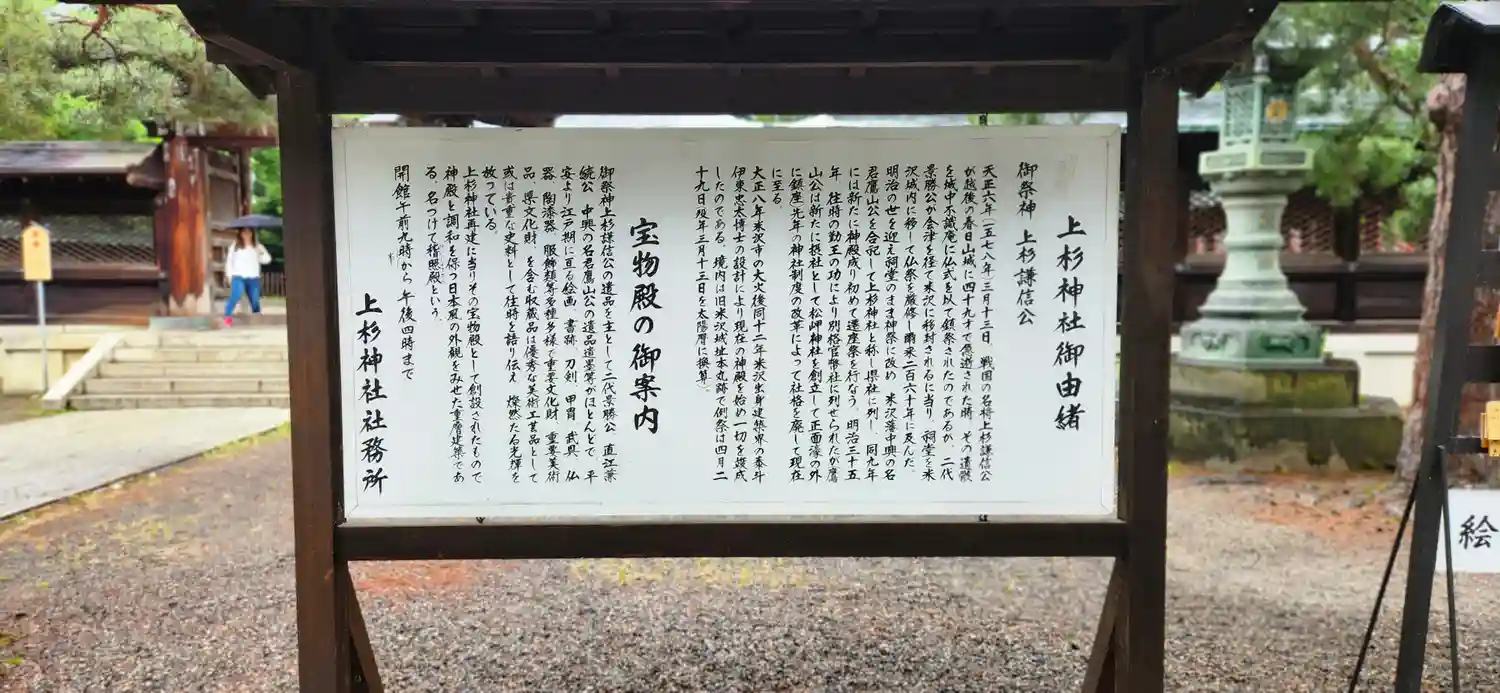 上杉神社御由緒
御祭神 上杉謙信公
天正六年(一五七八年)三月十三日、戦国の名将上杉謙信公
が越後の春日山城に四十九才で急逝された時、その遺骸
を城中不識庵に仏式を以て鎮祭されたのであるが、二代
景勝公が会津を経て米沢に移封されるに当り、祠堂を米
沢城内に移して仏祭を厳修し爾来二百六十年に及んだ。
明治の世を迎え祠堂のまま神祭に改め、米沢藩中興の名
君鷹山公を合祀して上杉神社と称し県社に列し、同九年
には新たに神殿成り初めて遷座祭を行なう。明治三十五
年、往時の勤王の功により別格官幣社に列せられたが鷹
山公は新たに摂社として松岬神社を創立して正面濠の外
に鎮座先年の神社制度の改革によって社格を廃して現在
に至る。
大正八年米沢市の大火後同十二年米沢出身建築界の泰斗
伊東忠太博士の設計により現在の神殿を始め一切を竣成
したのである。境内は旧米沢城址本丸跡で例祭は四月二
十九日歿年三月十三日を太陽暦に換算。
宝物殿の御案内
御祭神上杉謙信公の遺品を主として二代景勝公、直江兼
続公、中興の名君鷹山公の遺品遺墨等がほとんどで、平
安より江戸期に亘る絵画、書跡、刀剣、甲冑、武具、仏
器、陶漆器、服飾類等多種多様で重要文化財、重要美術
品、県文化財、を含む収蔵品は優秀な美術工芸品として
或は貴重な史料として往時を語り伝え、燦然たる光輝を
放っている。
上杉神社再建に当りその宝物殿として創設されたもので
神殿と調和を保つ日本風の外観をみせた重層建築であ
る、名つけて稽照殿という。
開館 午前九時から 午後四時まで
上杉神社社務所
絵